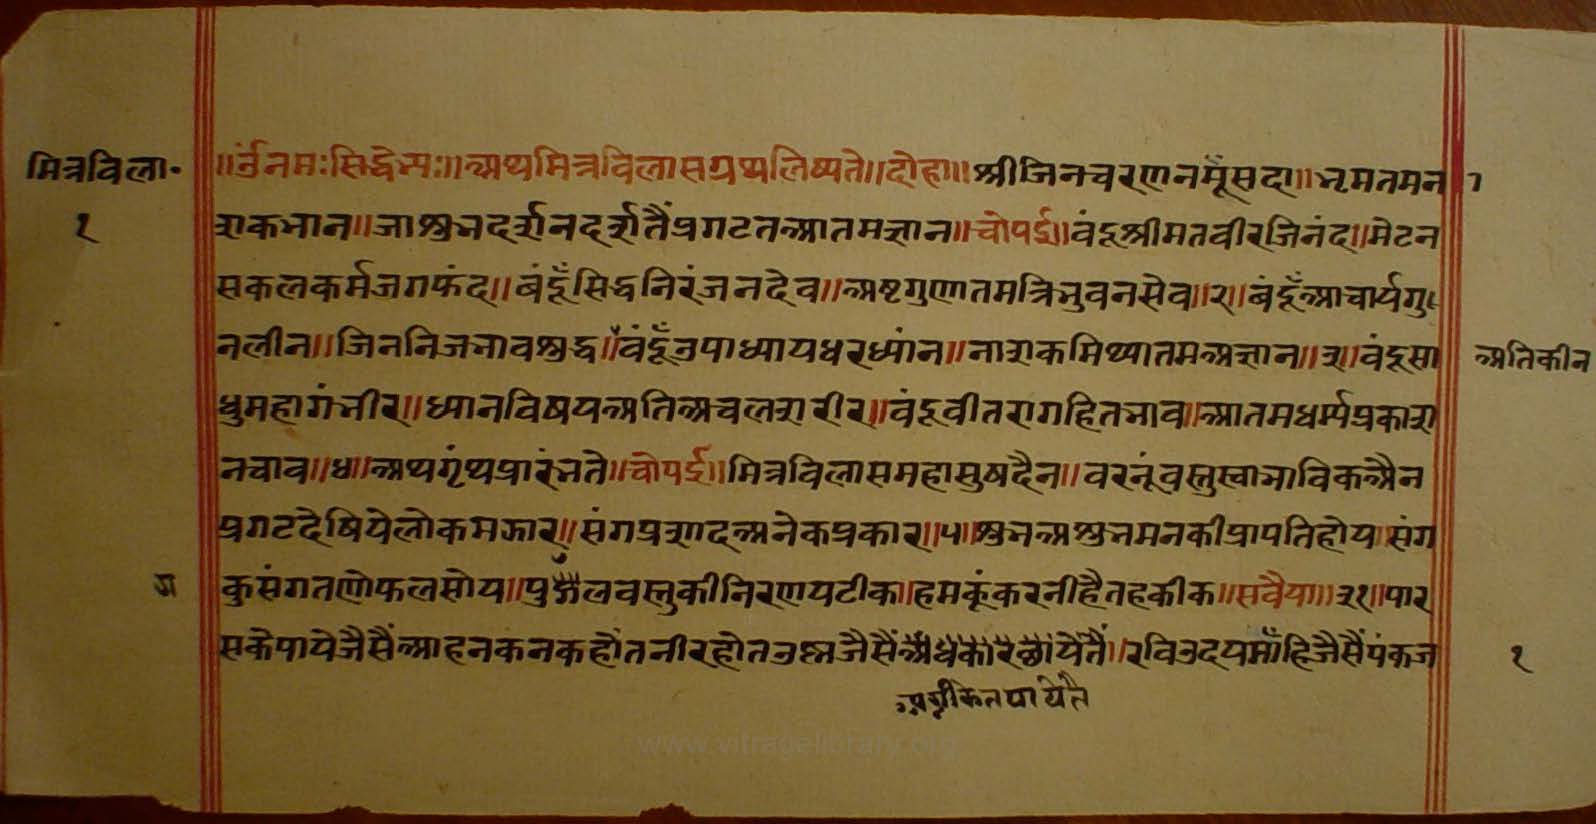 मित्रविला॰
१
॥ॐनमःसिद्धेभ्यः॥अथमित्रविलासग्रथलिष्यते॥दोहा॥श्रीजिनचरणनमूँसदा॥भ्रमतमन १
शकभान॥जाशुभदर्शनदर्शतैंप्रगटतआतमज्ञान॥चोपई॥वंदूश्रीमतवीरजिनंद॥मेटन
सकलकर्मजगफंद॥बंदूँसिद्धनिरंजनदेव॥अष्टगुणातमत्रिभुवनसेव॥२॥बंदूँआचार्यगु
नलीन॥जिननिजभावशुद्ध॥वंदूँउपाध्यायधरध्यांन॥नाशकमिथ्यातमअज्ञान॥३॥वंदूसा
अतिकीन
धुमहागंभीर॥ध्यानविषयअतिअचलशरीर॥वंदूवीतरागहितभाव॥आतमधर्मप्रकाश
नचाव॥४॥अथगृंथप्रारंभते॥चोपई॥मित्रविलासमहासुषदैन॥वरनूंवस्तुस्वाभाविकअैन
प्रगटदेषियेलोकमझार॥संगप्रशादअनेकप्रकार॥५॥शुभअशुभमनकीप्रापतिहोय॥संग
कुसंगतणोफलसोय॥पुद्गलवस्तुकीनिरणयटीक॥हमकूंकरनीहैतहकीक॥सवैया॥३१॥पार
सकेपायेजैसैंआहनकनकहोतनीरहोतउश्नजैसैं॥रविउदयमाँहिजैसैंपंकज
१